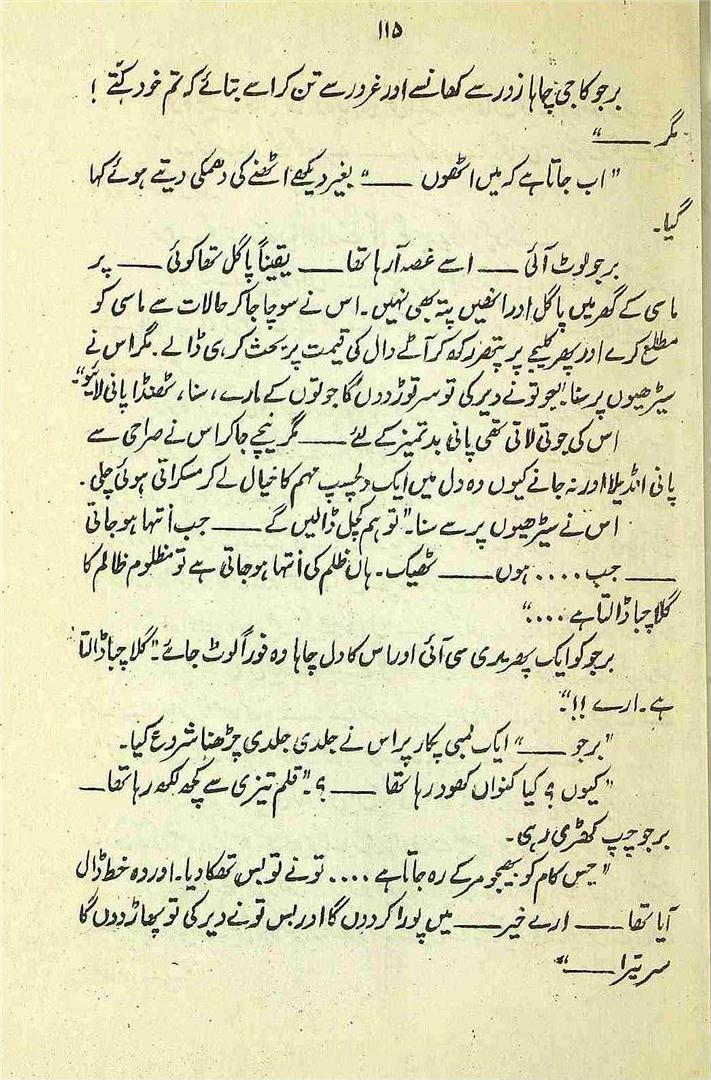 ۱۱۵
برجو کا جی چاہا زور سے کھانسے اور غرور سے تن کر اسے بتائے کہ تم خود کتّے !
مگر ——“
”اب جاتا ہے کہ میں اٹھوں ——“ بغیر دیکھے اٹھنے کی دھمکی دیتے ہوئے کہا
گیا۔
برجو لوٹ آئی —— اسے غصہ آرہا تھا —— یقیناً پاگل تھا کوئی —— پر
ماسی کے گھر میں پاگل اور انھیں پتہ بھی نہیں۔ اس نے سوچا جا کر حالات سے ماسی کو
مطلع کرے اور پھر کلیجے پر پتھر رکھ کر آٹے دال کی قیمت پر بحث کر ہی ڈالے۔ مگر اس نے
سیڑھیوں پر سنا ”بیجو تو نے دیر کی تو سر توڑ دوں گا جوتوں کے مارے، سنا، ٹھنڈا پانی لائیو“۔
اس کی جوتی لاتی تھی پانی بدتمیز کے لئے —— مگر نیچے جا کر اس نے صراحی سے
پانی انڈیلا اور نہ جانے کیوں وہ دل میں ایک دلچسپ مہم کا خیال لے کر مسکراتی ہوئی چلی۔
اس نے سیڑھیوں پر سے سنا۔ ”تو ہم کچل ڈالیں گے —— جب انتہا ہو جاتی
—— جب .... ہوں —— ٹھیک۔ ہاں ظلم کی انتہا ہو جاتی ہے تو مظلوم ظالم کا
گلا چبا ڈالتا ہے ....“
برجو کو ایک پھریری سی آئی اور اس کا دل چاہا وہ فوراً لوٹ جائے۔ ”گلا چبا ڈالتا
ہے۔ ارے !!“۔
”برجو ——“ ایک لمبی پکار پر اس نے جلدی جلدی چڑھنا شروع کیا۔
”کیوں ؟ کیا کنواں کھود رہا تھا —— ؟“ قلم تیزی سے کچھ لکھ رہا تھا ——
برجو چپ کھڑی رہی۔
”جس کام کو بھیجو مر کے رہ جاتا ہے .... تو نے تو بس تھکا دیا۔ اور وہ خط ڈال
آیا تھا —— ارے خیر —— میں پورا کر دوں گا اور بس تو نے دیر کی تو پھاڑ دوں گا
سر تیرا ——“